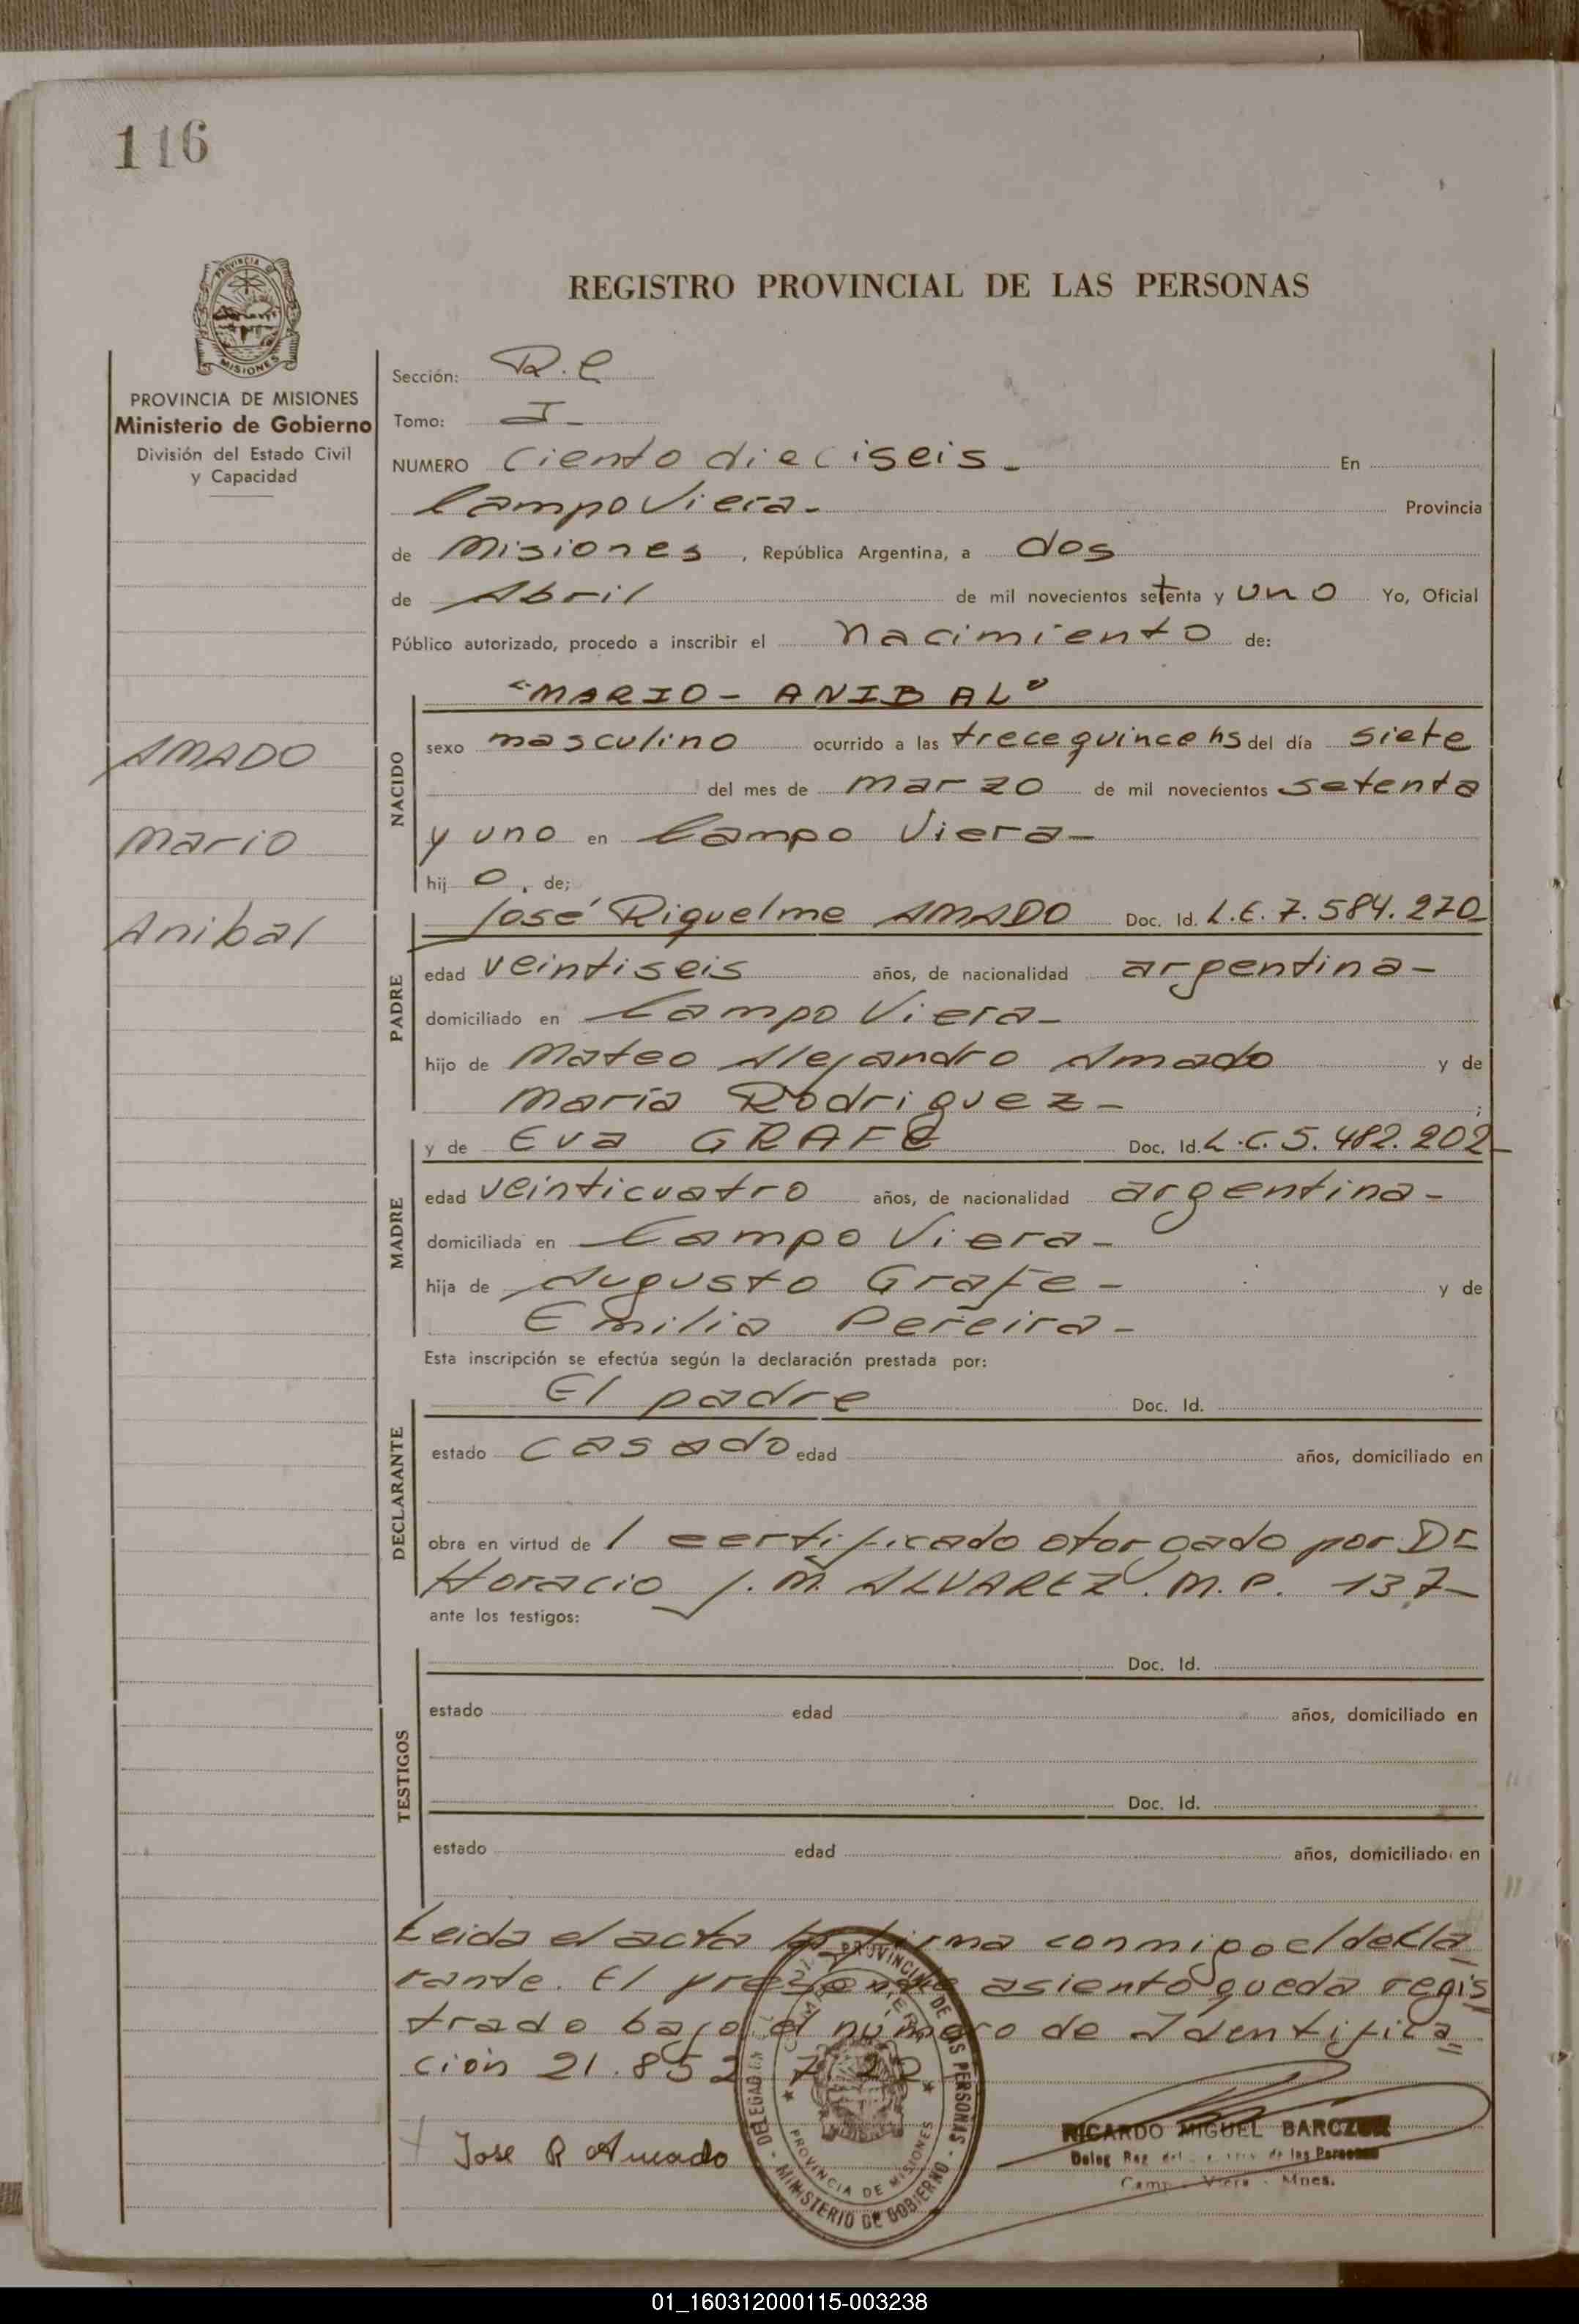 116
PROVINCIA DE
MISIONES
REGISTRO PROVINCIAL DE LAS PERSONAS
PROVINCIA DE MISIONES
Ministerio de Gobierno
División del Estado Civil
y Capacidad
AMADO
Mario
Anibal
Sección: R.C
Tomo: I -
NUMERO Ciento dieciseis - En
Campo Viera - Provincia
de Misiones, República Argentina, a dos
de Abril de mil novecientos setenta y uno Yo, Oficial
Público autorizado, procedo a inscribir el nacimiento de:
"MARIO - ANIBAL"
NACIDO
sexo masculino ocurrido a las trece quince hs del día siete
del mes de marzo de mil novecientos setenta
y uno en Campo Viera -
hij o, de;
PADRE
José Riquelme AMADO Doc. Id. L.E. 7.584.270
edad veintiseis años, de nacionalidad argentina -
domiciliado en Campo Viera -
hijo de Mateo Alejandro Amado y de
María Rodriguez - ;
MADRE
y de Eva GRAFE Doc. Id. L.C. 5.482.202 -
edad veinticuatro años, de nacionalidad argentina -
domiciliada en Campo Viera -
hija de Augusto Grafe - y de
Emilia Pereira -
Esta inscripción se efectúa según la declaración prestada por:
DECLARANTE
El padre Doc. Id.
estado casado edad años, domiciliado en
obra en virtud de 1 certificado otorgado por Dr
Horacio J. M. ALVAREZ. M.P. 137 -
ante los testigos:
TESTIGOS
Doc. Id.
estado edad años, domiciliado en
Doc. Id.
estado edad años, domiciliado en
Leida el acta la firma conmigo el decla
rante. El presente asiento queda regis
trado bajo el número de Identifica
ción 21.852.7
Jose R Amado
PROVINCIAL DE LAS PERSONAS
MINISTERIO DE GOBIERNO
PROVINCIA DE MISIONES
RICARDO MIGUEL
Deleg Reg de las Personas
Campo Viera - Mnes.
01_160312000115-003238